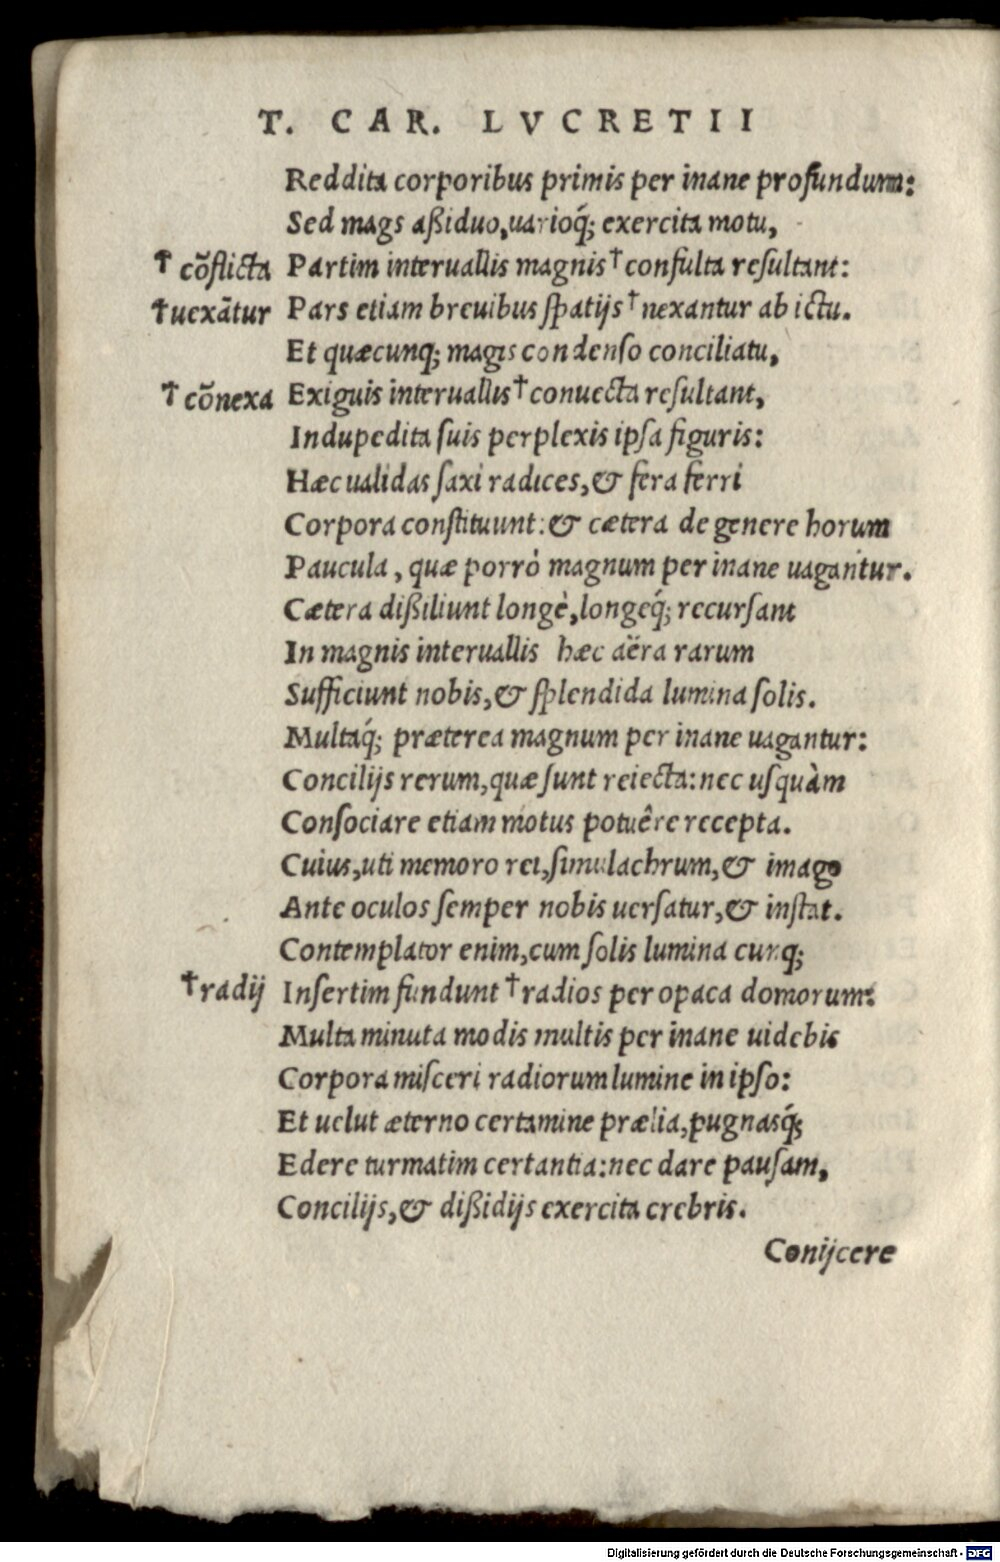 T. CAR. LVCRETII
Reddita corporibus primis per inane profundum:
Sed mags aßiduo,uarioq́; exercita motu,
† cõflicta Partim interuallis magnis † confulta resultant:
† uexãtur Pars etiam breuibus spatijs † nexantur ab ictu.
Et quæcunq; magis condenso conciliatu,
† cõnexa Exiguis interuallis † conuecta resultant,
Indupedita suis perplexis ipsa figuris:
Hæc ualidas saxi radices,& fera ferri
Corpora constituunt:& cætera de genere horum
Paucula, quæ porrò magnum per inane uagantur.
Cætera dißiliunt longè,longeq́; recursant
In magnis interuallis hæc aëra rarum
Sufficiunt nobis,& splendida lumina solis.
Multaq́; præterea magnum per inane uagantur:
Concilijs rerum,quæ sunt reiecta:nec usquàm
Consociare etiam motus potuêre recepta.
Cuius,uti memoro rei,simulachrum,& imago
Ante oculos semper nobis uersatur,& instat.
Contemplator enim,cum solis lumina cunq;
† radij Insertim fundunt † radios per opaca domorum:
Multa minuta modis multis per inane uidebis
Corpora misceri radiorum lumine in ipso:
Et uelut æterno certamine prælia,pugnasq́;
Edere turmatim certantia:nec dare pausam,
Concilijs,& dißidijs exercita crebris.
Conijcere
Digitalisierung gefördert durch die Deutsche Forschungsgemeinschaft - DFG